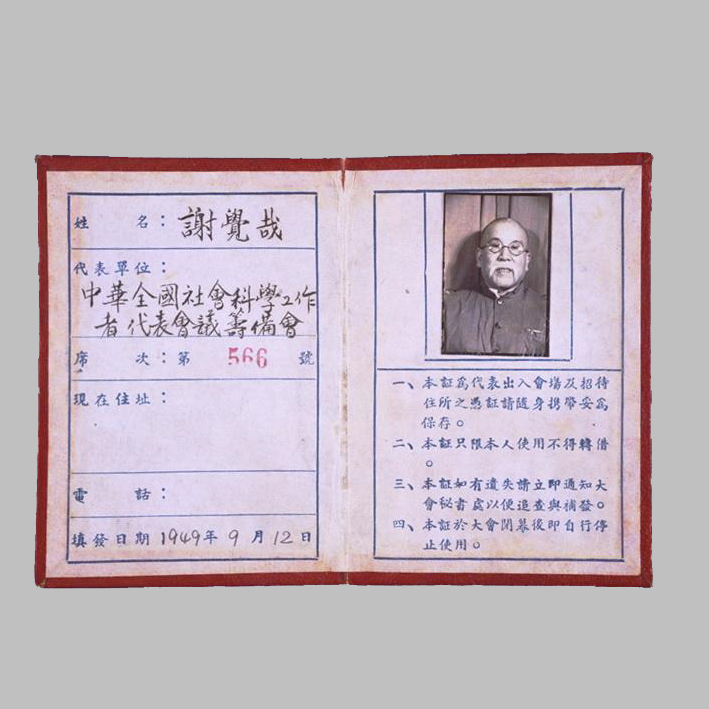 姓 名：謝覺哉
代表單位：
中華全國社會科學工作
者代表會議籌備會
席 次：第 566 號
現在住址：
電 話：
填發日期 1949年 9 月 12 日
一、本証爲代表出入會場及招待
住所之憑証請隨身携帶妥爲
保存。
二、本証只限本人使用不得轉借
。
三、本証如有遺失請立即通知大
會秘書處以便追查與補發。
四、本証於大會閉幕後即自行停
止使用。